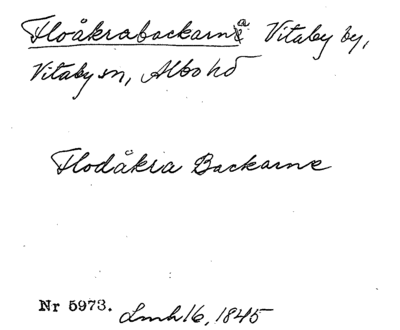 Floåkrabackarna Vitaby by,
Vitaby sn, Albo hd
Flodåkra Backarne
Nr 5973. Lmh 16, 1845